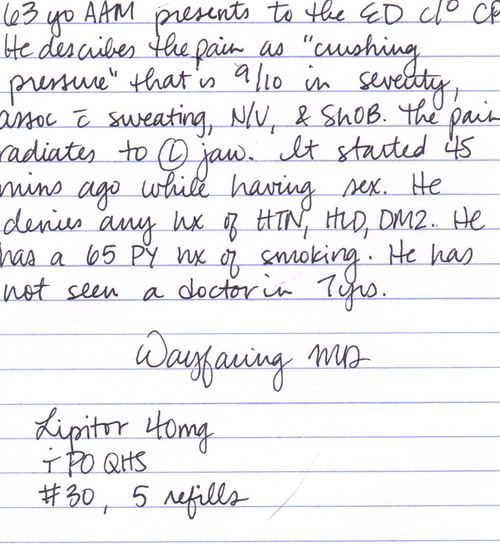 63 yo AAM presents to the ED c/o CP
He describes the pain as "crushing
pressure" that is 9/10 in severity,
assoc c̄ sweating, N/V, & ShOB. The pain
radiates to Ⓛ jaw. It started 45
mins ago while having sex. He
denies any hx of HTN, HLD, DM2. He
has a 65 PY hx of smoking. He has
not seen a doctor in 7yrs.
Wayfaring MD
Lipitor 40mg
i PO QHS
#30, 5 refills